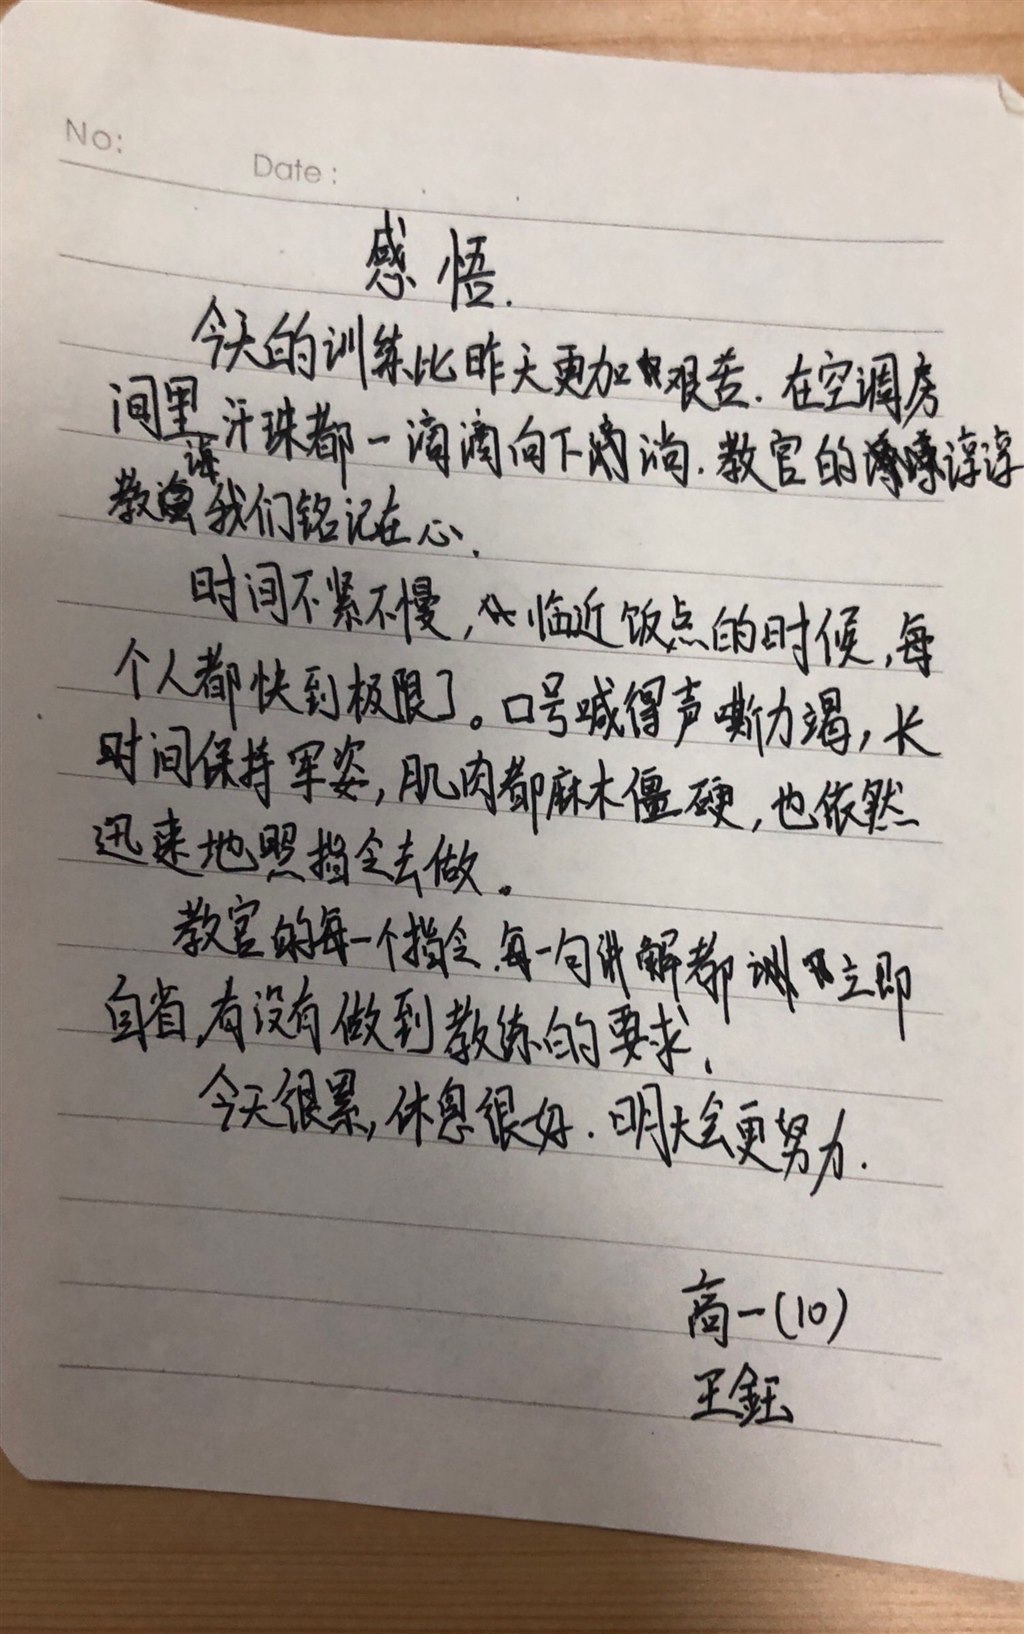 No:
Date:
感悟.
今天的训练比昨天更加艰苦.在空调房
间里,汗珠都一滴滴向下淌.教官的谆谆
教诲我们铭记在心.
时间不紧不慢,临近饭点的时候,每
个人都快到极限了。口号喊得声嘶力竭,长
时间保持军姿,肌肉都麻木僵硬,也依然
迅速地照指令去做。
教官的每一个指令.每一句讲解都立即
自省,有没有做到教练的要求.
今天很累,休息很好.明天会更努力.
高一(10)
王鈺